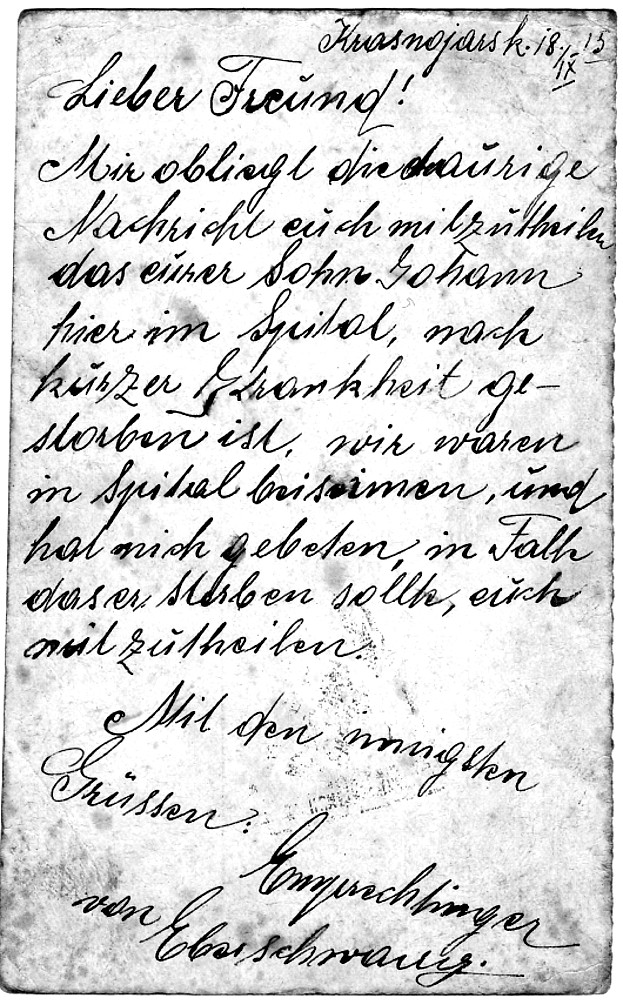 Krasnojarsk. 18/IX 15
Lieber Freund!
Mir obliegt die traurige
Nachricht euch mitzutheilen
das eurer Sohn Johann
hier im Spital, nach
kurzer Krankheit ge-
storben ist, wir waren
in Spital beisaimen, und
hat mich gebeten, in Falle
das er, sterben sollte, euch
mitzutheilen.
Mit den innigsten
Grüssen:
Emprechtinger
von Eberschwang.